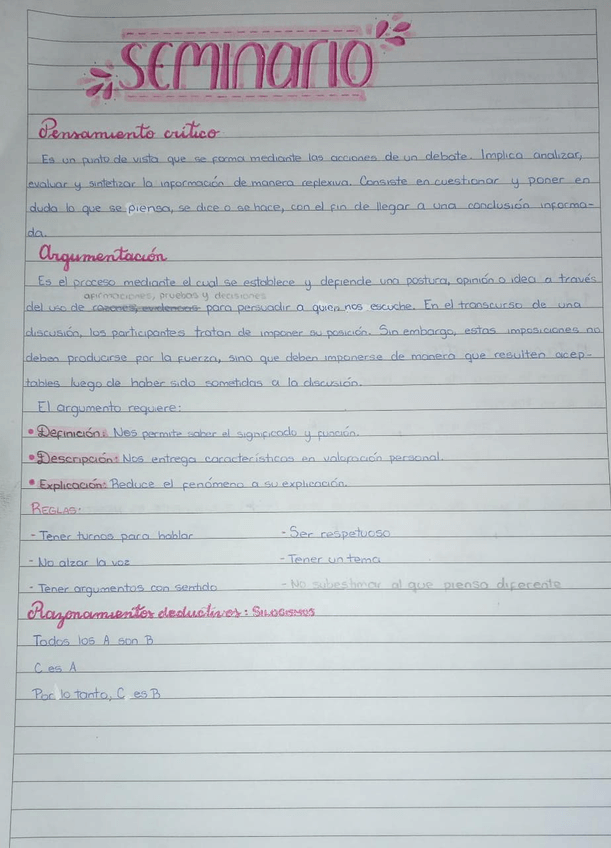 SEMINARIO
Pensamiento critico
Es un punto de vista que se forma mediante las acciones de un debate. Implica analizar,
evaluar y sintetizar la información de manera reflexiva. Consiste en cuestionar y poner en
duda lo que se piensa, se dice o se hace, con el fin de llegar a una conclusión informa-
da.
Argumentación
Es el proceso mediante el cual se establece y defiende una postura, opinión o idea a través
afirmaciones, pruebas y decisiones
del uso de razones, evidencias para persuadir a quien nos escuche. En el transcurso de una
discusión, los participantes tratan de imponer su posición. Sin embargo, estas imposiciones no
deben producirse por la fuerza, sino que deben imponerse de manera que resulten acep-
tables luego de haber sido sometidas a la discusión.
El argumento requiere:
• Definición: Nos permite saber el significado y función.
• Descripción: Nos entrega características en valoración personal.
• Explicación: Reduce el fenómeno a su explicación.
REGLAS:
- Tener turnos para hablar
- Ser respetuoso
- No alzar la voz
- Tener un tema
- Tener argumentos con sentido
- No subestimar al que piensa diferente
Razonamientos deductivos: SILOGISMOS
Todos los A son B
C es A
Por lo tanto, C es B